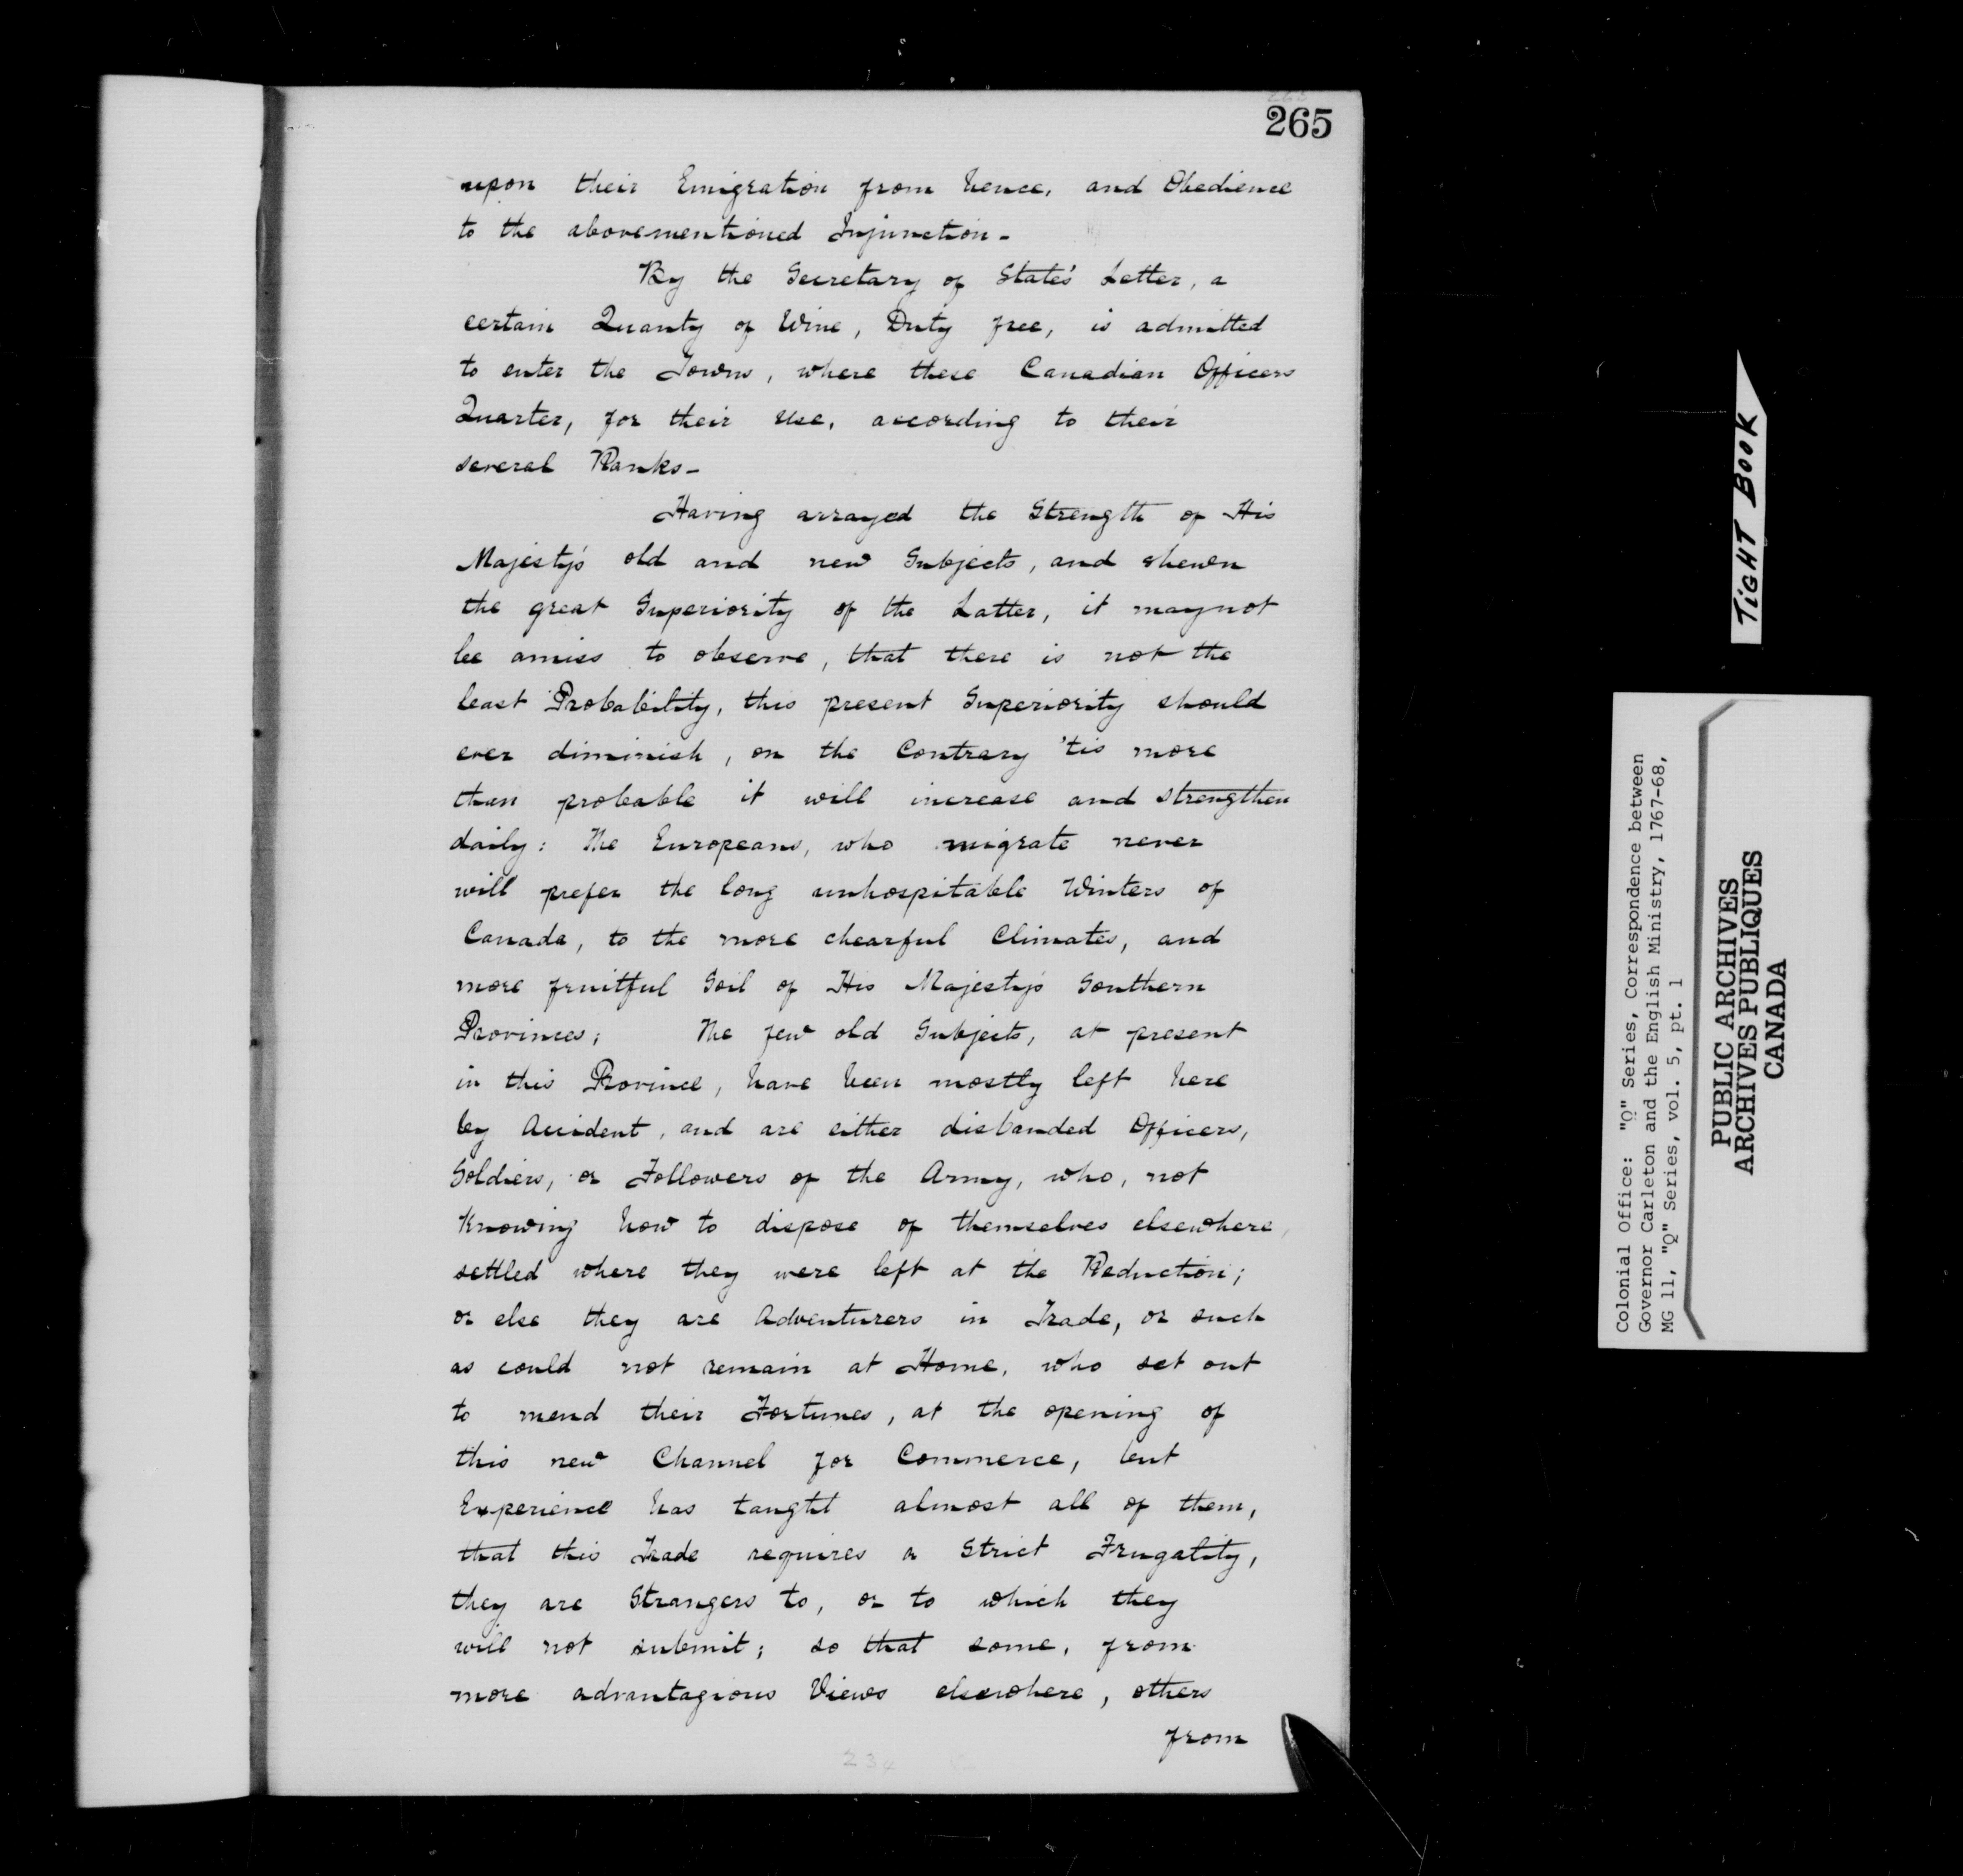 265
upon their Emigration from hence, and Obedience
to the abovementioned Injunction -
By the Secretary of State's Letter, a
certain Quanty of Wine, Duty free, is admitted
to enter the Towns, where these Canadian Officers
Quarter, for their Use, according to their
several Ranks -
Having arrayed the Strength of His
Majesty's old and new Subjects, and shewn
the great Superiority of the Latter, it may not
be amiss to observe, that there is not the
least Probability, this present Superiority should
ever diminish, on the Contrary 'tis more
than probable it will increase and strengthen
daily: The Europeans, who migrate never
will prefer the long unhospitable Winters of
Canada, to the more chearful Climates, and
more fruitful Soil of His Majesty's Southern
Provinces; The few old Subjects, at present
in this Province, have been mostly left here
by Accident, and are either disbanded Officers,
Soldiers, or Followers of the Army, who, not
Knowing how to dispose of themselves elsewhere,
settled where they were left at the Reduction;
or else they are Adventurers in Trade, or such
as could not remain at Home, who set out
to mend their Fortunes, at the opening of
this new Channel for Commerce, but
Experience has taught almost all of them,
that this Trade requires a Strict Frugality,
they are Strangers to, or to which they
will not submit; so that some, from
more advantagious Views elsewhere, others
from
234
TIGHT BOOK
Colonial Office: "Q" Series, Correspondence between
Governor Carleton and the English Ministry, 1767-68,
MG 11, "Q" Series, vol. 5, pt. 1
PUBLIC ARCHIVES
ARCHIVES PUBLIQUES
CANADA